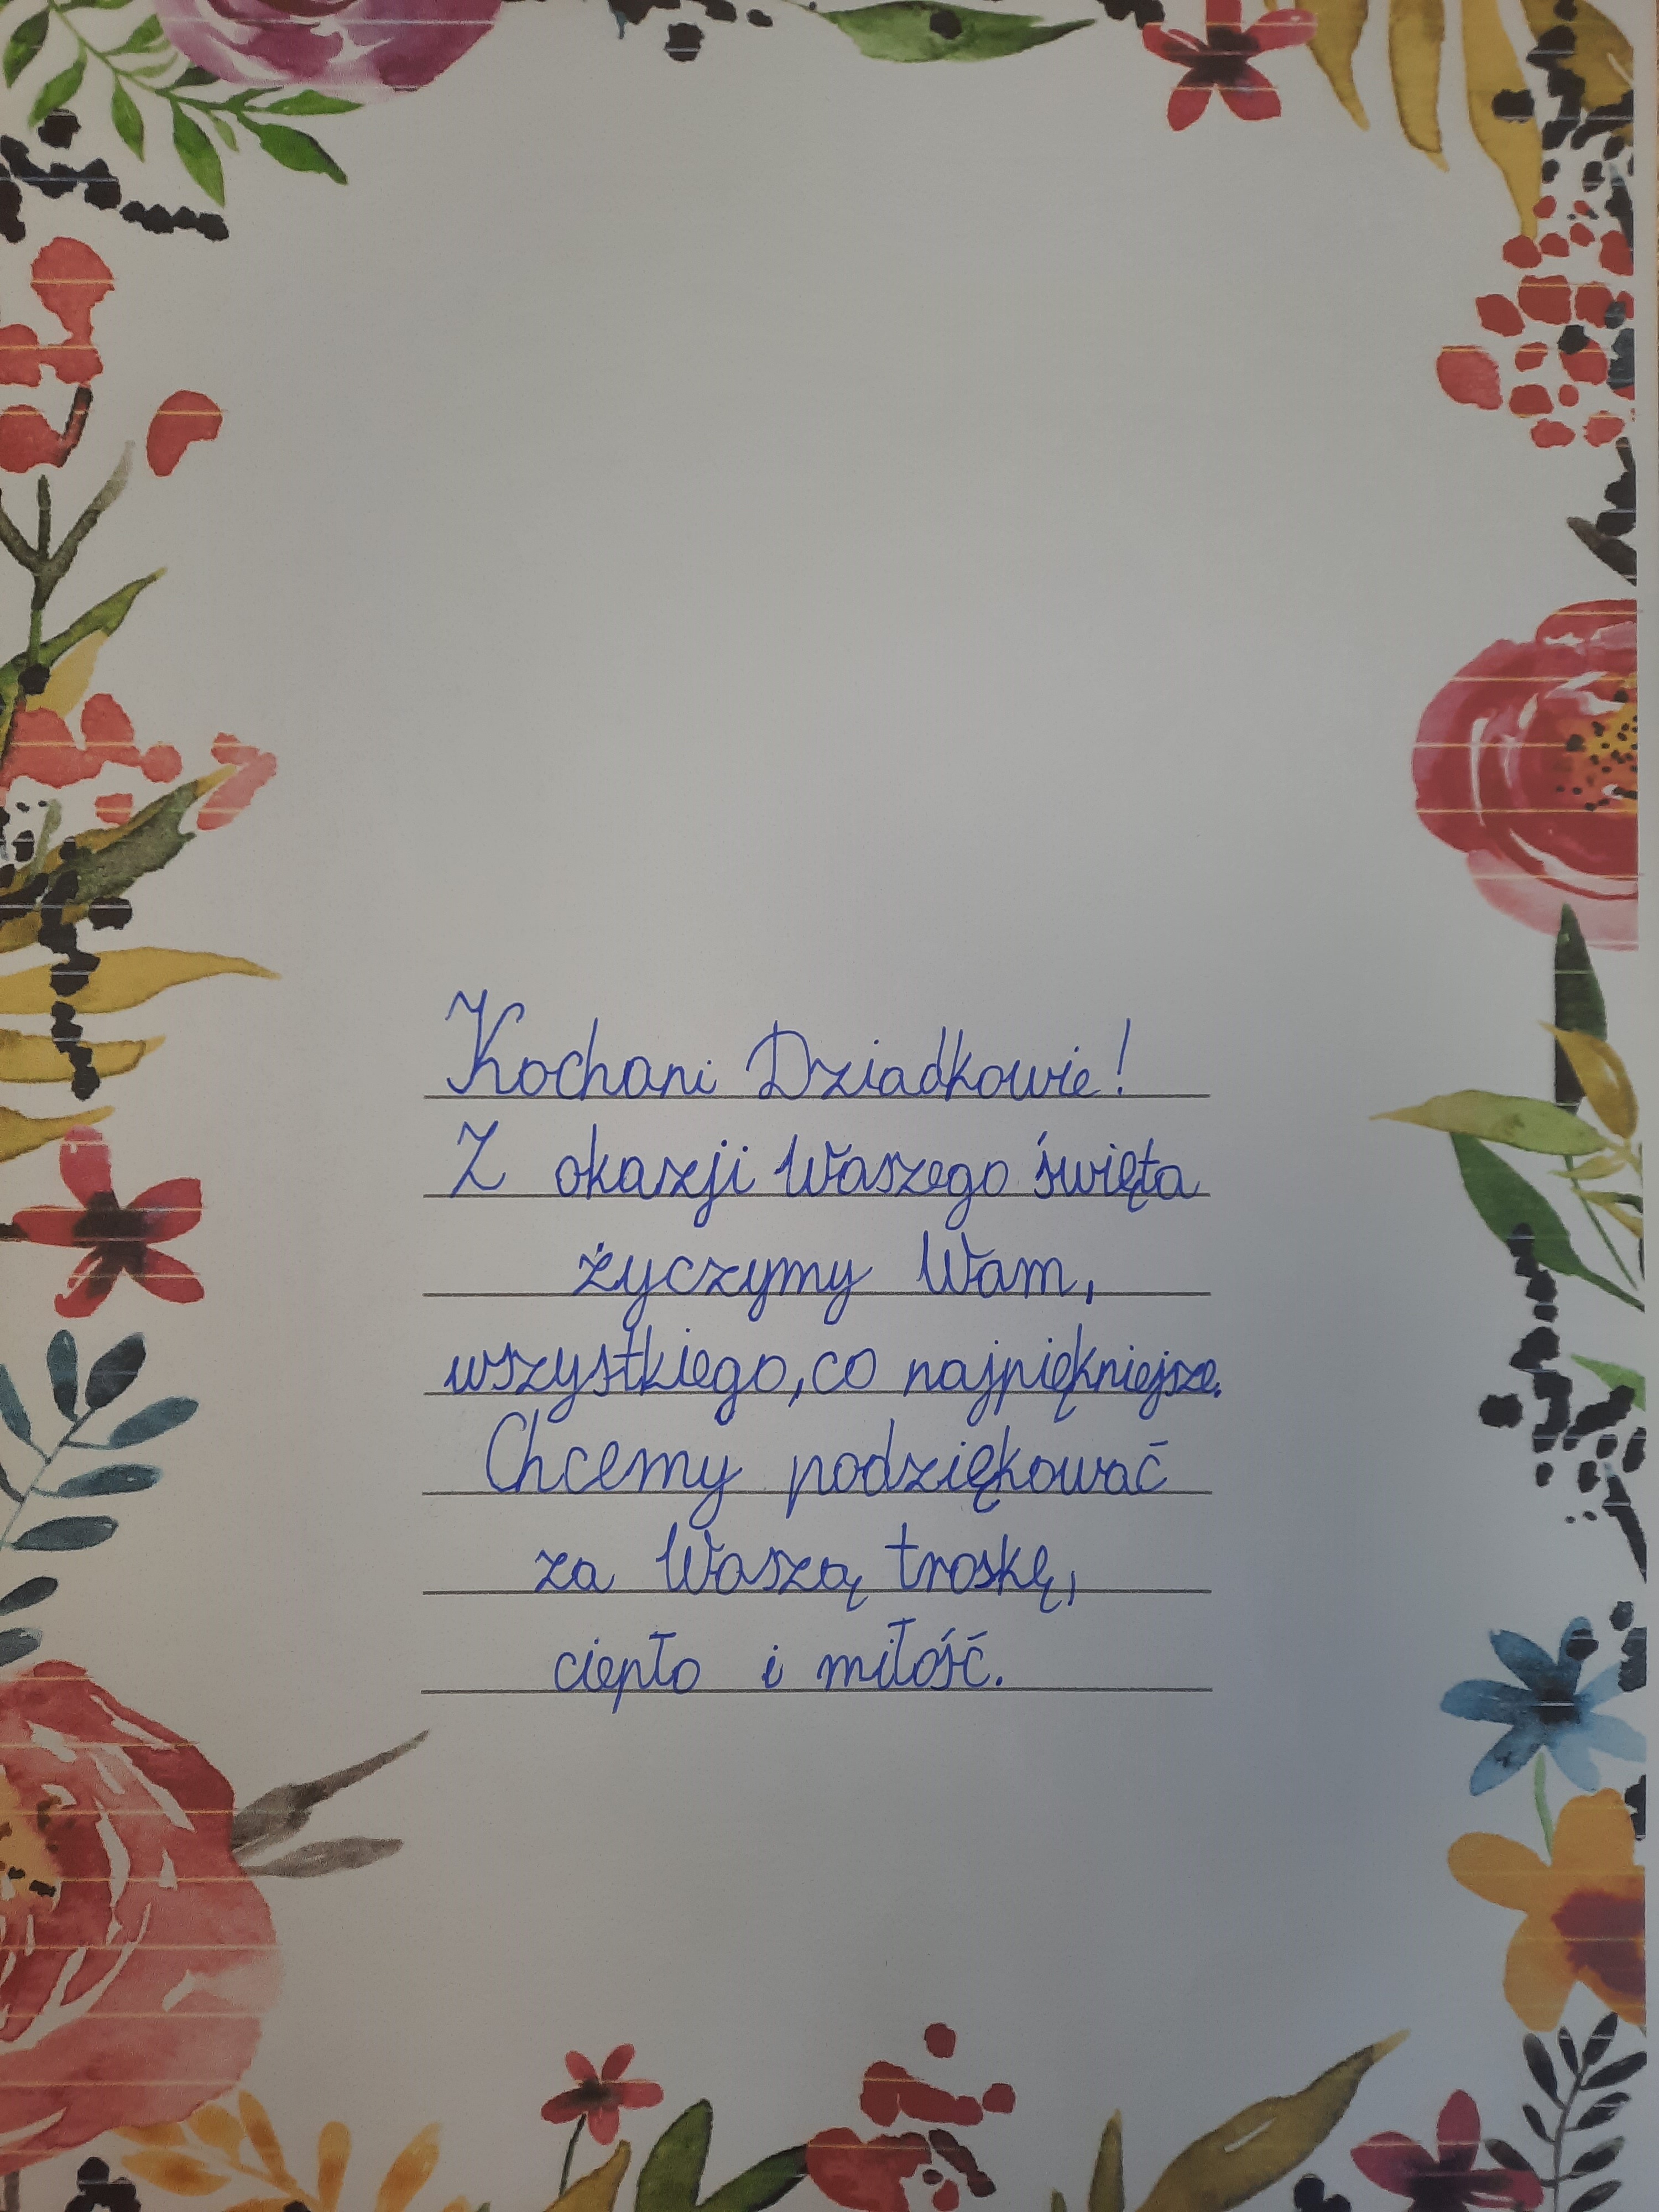 Kochani Dziadkowie!
Z okazji Waszego święta
życzymy Wam,
wszystkiego, co najpiękniejsze.
Chcemy podziękować
za Waszą troskę,
ciepło i miłość.